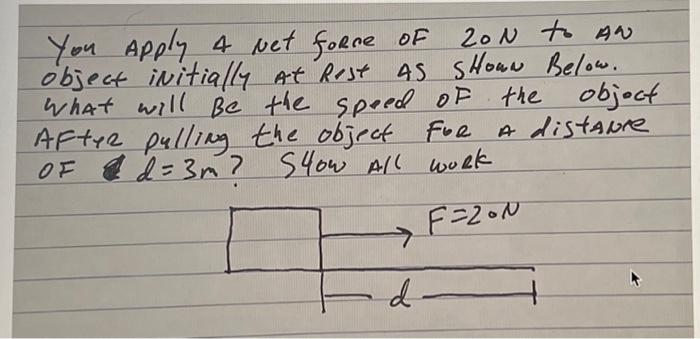 You Apply A Net force OF 20N to AN
object initially At Rest AS SHown Below.
What will Be the speed OF the object
AFter pulling the object For A distance
OF d=3m? Show All work
F=20N
d